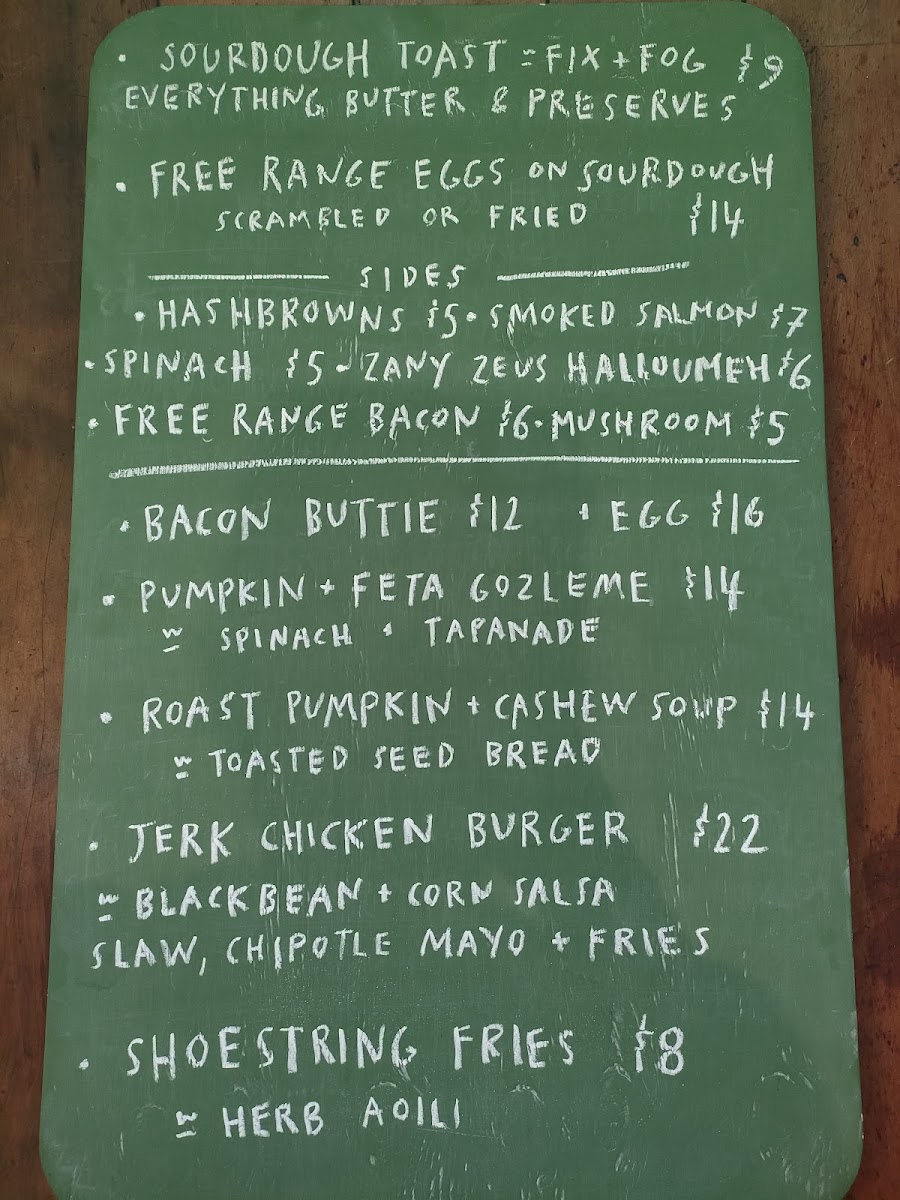 • SOURDOUGH TOAST w FIX + FOG $9
EVERYTHING BUTTER & PRESERVES
• FREE RANGE EGGS ON SOURDOUGH
SCRAMBLED OR FRIED $14
SIDES
• HASHBROWNS $5 • SMOKED SALMON $7
• SPINACH $5 - ZANY ZEUS HALLOUMEH $6
• FREE RANGE BACON $6 • MUSHROOM $5
• BACON BUTTIE $12 + EGG $16
• PUMPKIN + FETA GOZLEME $14
w SPINACH + TAPANADE
• ROAST PUMPKIN + CASHEW SOUP $14
w TOASTED SEED BREAD
• JERK CHICKEN BURGER $22
w BLACKBEAN + CORN SALSA
SLAW, CHIPOTLE MAYO + FRIES
• SHOESTRING FRIES $8
w HERB AOILI